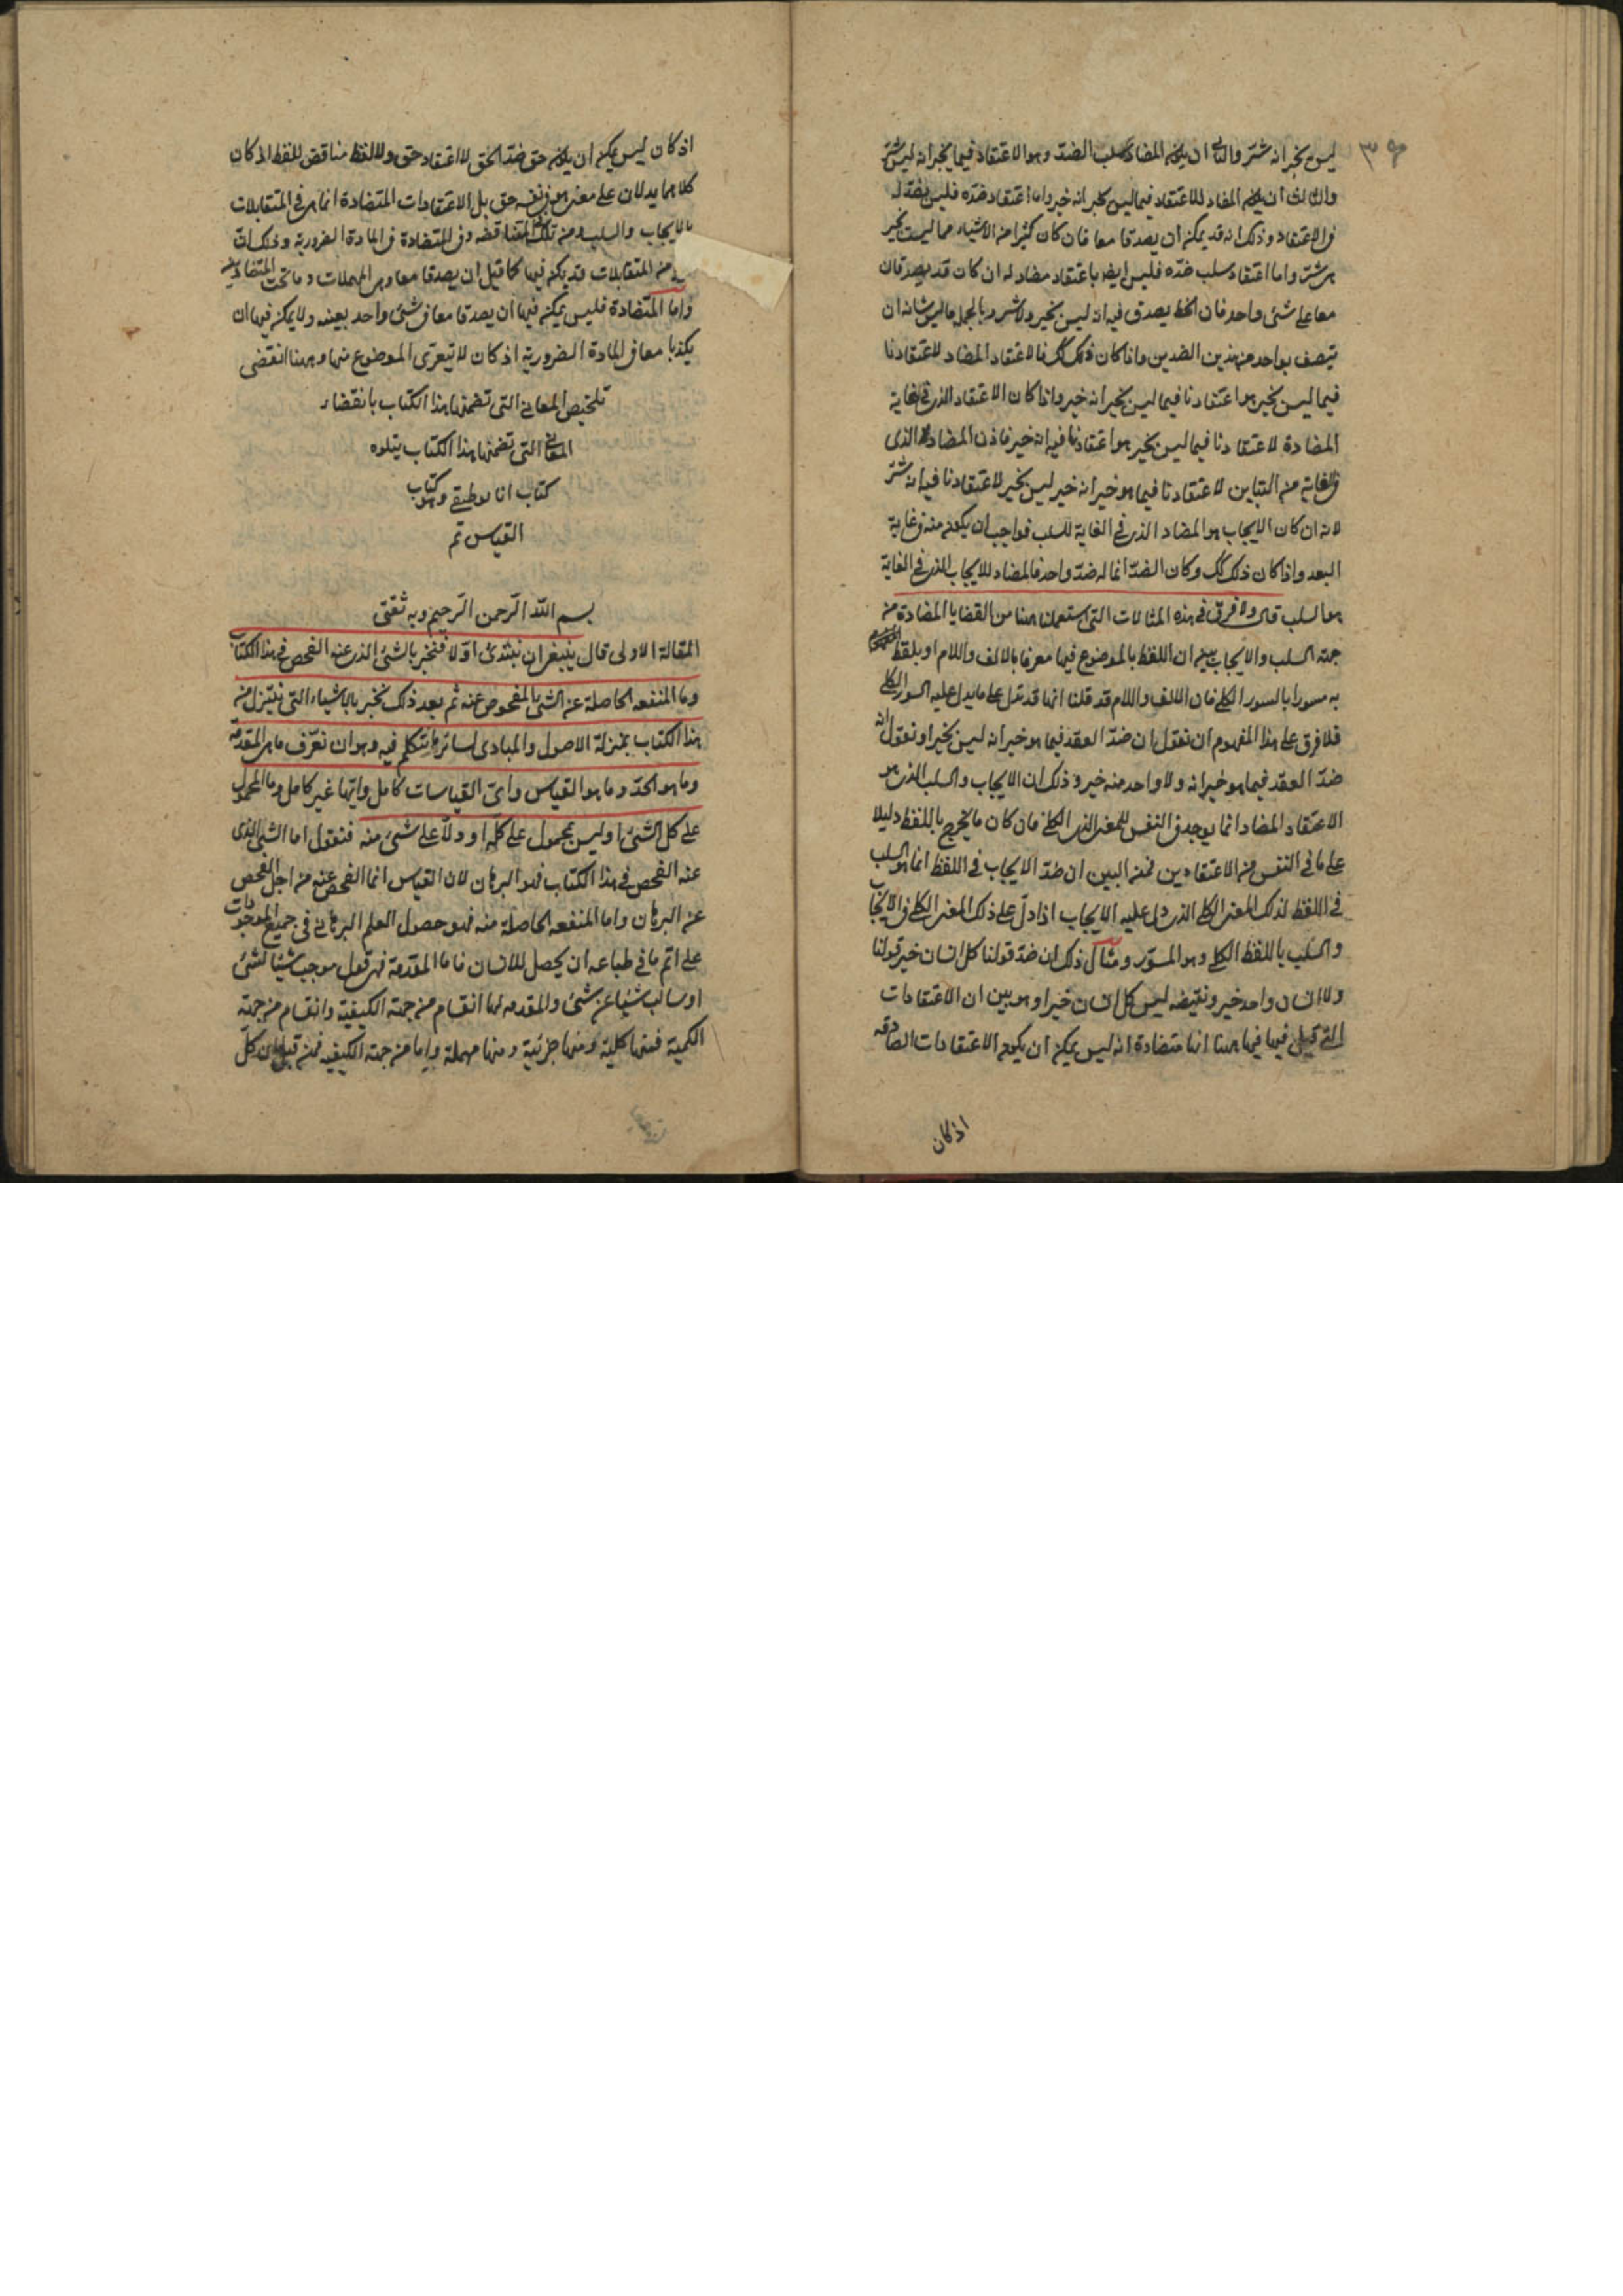 ٣٩
ليس بخير انه شر والثاني ان يكون المضاد سلب الضد وهو الاعتقاد فيما بخير انه ليس بشر
والثالث ان يكون المضاد للاعتقاد فيما ليس بخير انه خير واما اعتقاد ضده فليس بضد له
في الاعتقاد وذلك انه قد يمكن ان يصدقا معا فان كان كثيرا من الاشياء مما ليست بخير
هي شر واما اعتقاد سلب ضده فليس ايضا باعتقاد مضاد له ان كان قد يصدقان
معا على شئ واحد فان الخط يصدق فيه انه ليس بخير ولا شر وبالجمله ما ليس شانه ان
يتصف بواحد من هذين الضدين واذا كان ذلك كذلك فالاعتقاد المضاد لاعتقادنا
فيما ليس بخير هو اعتقادنا فيما ليس بخير انه خير واذا كان الاعتقاد الذي في غاية
المضادة لاعتقادنا فيما ليس بخير هو اعتقادنا فيه انه خير فاذن المضاد الذى
في الغاية من التباين لاعتقادنا فيما هو خير انه خير ليس بخير لاعتقادنا فيه انه شر
لانه ان كان الايجاب هو المضاد الذي في الغاية للسلب فواجب ان يكون منه في غاية
البعد واذا كان ذلك كك وكان الضد انما له ضد واحد فالمضاد للايجاب الذي في الغاية
هو السلب قال ولا فرق في هذه المثالات التي استعملنا ههنا من القضايا المضادة من
جهة السلب والايجاب بين ان اللفظ بالموضوع فيها معرفا بالالف واللام او يلفظ
به مسورا بالسور الكلي فان الالف واللام قد قلنا انها قد تدل على ما يدل عليه السور الكلي
فلا فرق على هذا المفهوم ان نقول ان ضد العقد فيما هو خير انه ليس بخير او نقول ان
ضد العقد فيما هو خير انه ولا واحد منه خير وذلك ان الايجاب والسلب الذي هو
الاعتقاد المضاد انما يوجد في النفس للمعنى الكلي فان كان ما يخرج باللفظ دليلا
على ما في النفس من الاعتقادين فمن البين ان ضد الايجاب في اللفظ انما هو السلب
في اللفظ لذلك المعنى الكلي الذي دل عليه الايجاب اذا دل على ذلك المعنى الكلي في الايجاب
والسلب باللفظ الكلي وهو المسور ومثال ذلك ان ضد قولنا كل انسان خير قولنا
ولا انسان واحد خير ونقيضه ليس كل انسان خيرا وهو بين ان الاعتقادات
التي قيل فيها فيما ههنا انها متضادة انه ليس يمكن ان يكون الاعتقادات الصادقه
اذ كان
اذ كان ليس يمكن ان يكون حق ضد الحق لا اعتقاد حق ولا لفظ مناقض للفظ اذ كان
كلاهما يدلان على معنى هو في نفسه حق بل الاعتقادات المتضادة انما هي في المتقابلات
بالايجاب والسلب ومن تلك في المتناقضه وفي المتضادة في المادة الضرورية وذلك ان
من المتقابلات قد يمكن فيها كما قيل ان يصدقا معا وهي المهملات وما تحت المتضادين
واما المتضادة فليس يمكن فيها ان يصدقا معا في شئ واحد بعينه ولا يمكن فيها ان
يكذبا معا في المادة الضرورية اذ كان لا يتعرى الموضوع منها وههنا انقضى
تلخيص المعاني التي تضمنها هذا الكتاب بانقضاء
المعاني التي تضمنها هذا الكتاب يتلوه
كتاب انالوطيقي وهو كتاب
القياس تم
بسم الله الرحمن الرحيم وبه ثقتى
المقالة الاولى قال ينبغي ان نبتدئ اولا فنخبر بالشئ الذي عنه الفحص في هذا الكتاب
وما المنفعه الحاصلة عن الشئ المفحوص عنه ثم بعد ذلك نخبر بالاشياء التي تتنزل من
هذا الكتاب بمنزلة الاصول والمبادى لسائر ما نتكلم فيه وهو ان نعرف ما هي المقدمة
وما هو الحد وما هو القياس واي القياسات كامل وايها غير كامل وما المحمول
على كل الشئ او ليس بمحمول على كله او ولا على شئ منه فنقول اما الشئ الذى
عنه الفحص في هذا الكتاب فهو البرهان لان القياس انما الفحص عنه من اجل الفحص
عن البرهان واما المنفعه الحاصلة منه فهو حصول العلم البرهاني في جميع الموجودات
على اتم ما في طباعه ان يحصل للانسان فاما المقدمة فهي قول موجب شيئا لشئ
او سالب شيئا عن شئ والمقدمه لها انقسام من جهة الكيفية وانقسام من جهة
الكمية فمنها كلية ومنها جزئية ومنها مهملة واما من جهة الكيفيه فمن قبل ان كل